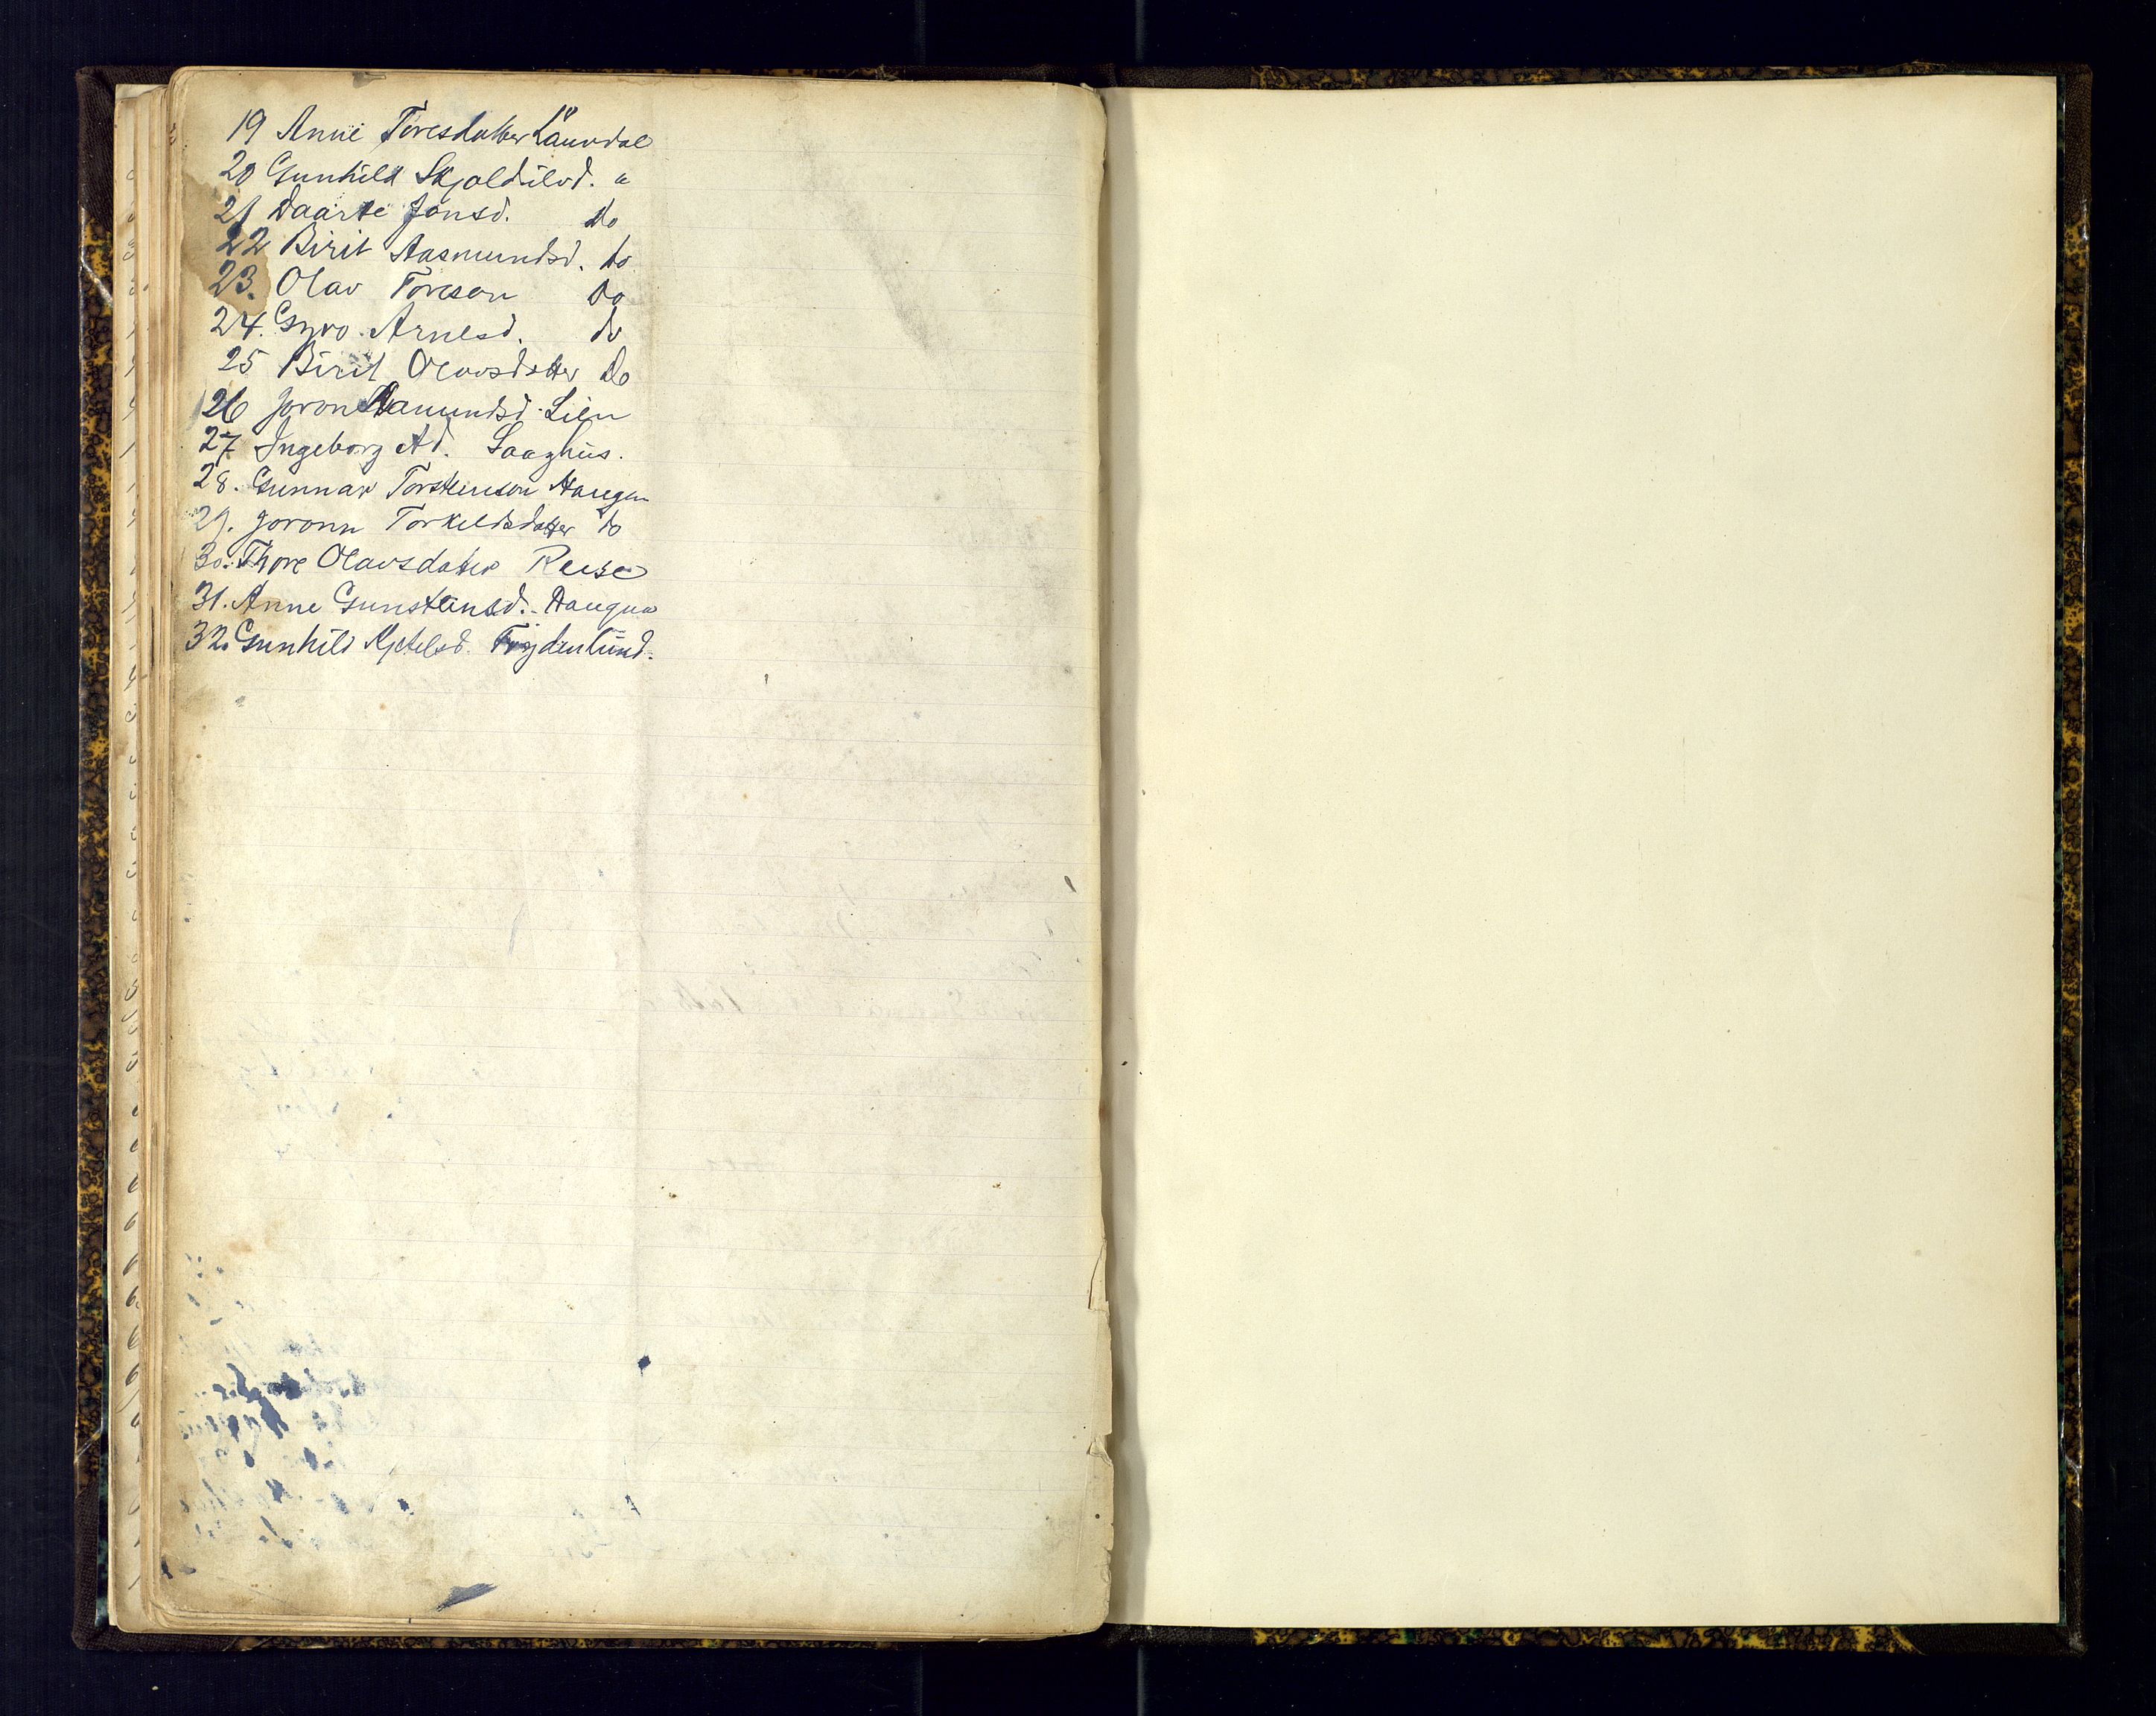 19 Anne Toresdatter Laurdal
20 Gunhild Skjoldulvd. "
21 Daarte Jonsd. do
22 Birit Aasmundsd. do
23. Olav Toreson do
24. Gyro Arnesd. do
25 Birit Olavsdatter do
26 Joron Aamundsd. Lien
27 Ingeborg Ad. Saaghus.
28. Gunnar Torsteinson Haugen
29. Joronn Torkeldsdatter do
30. Thore Olavsdatter
31. Anne Gunsteinsd. Haugen
32. Gunhild Kjetelsd.